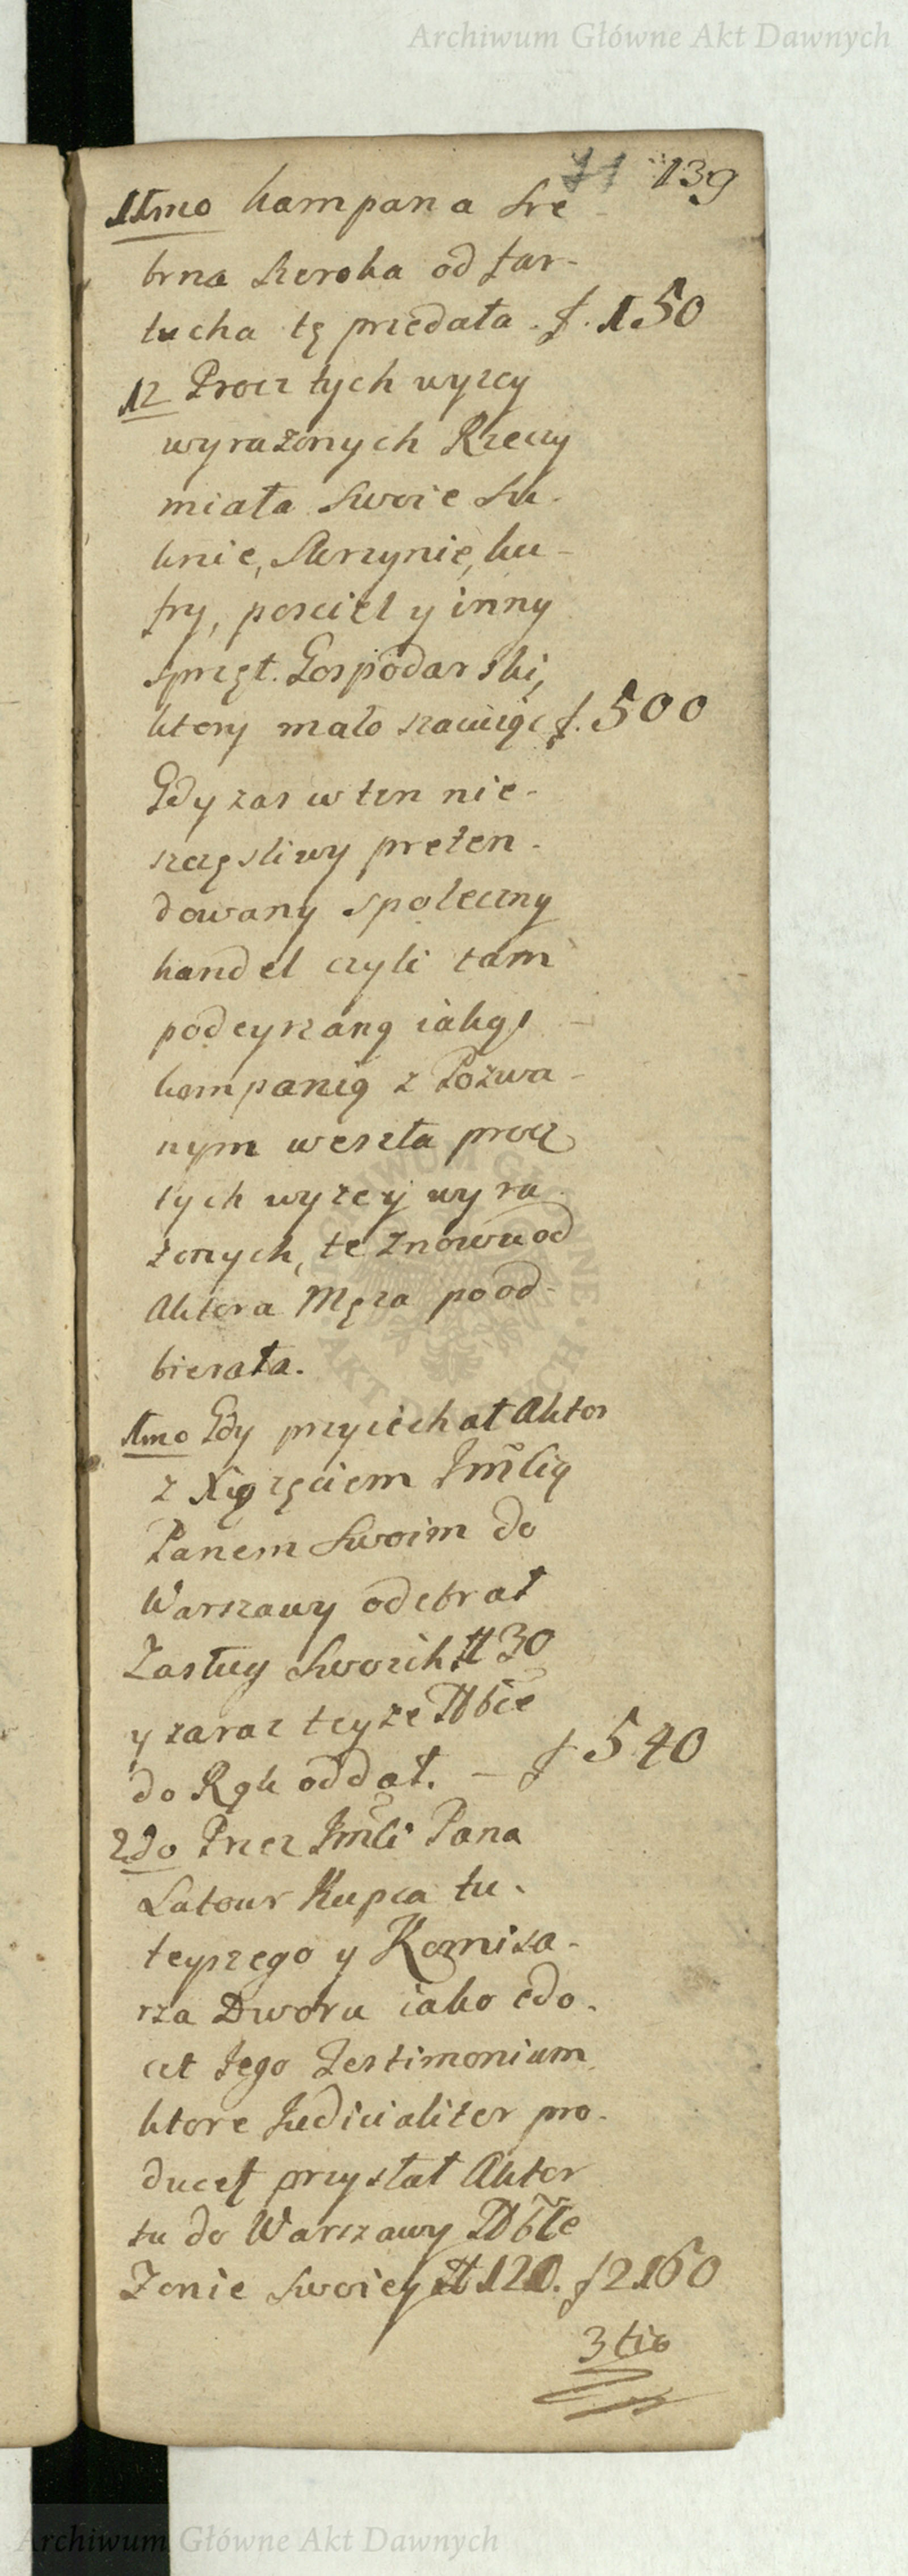 Archiwum Główne Akt Dawnych
11 139
11mo kampana sre-
brna szeroka od far-
tucha tę przedała. f. 150
12 Procz tych wyzcy
wyrażonych Rzeczy
miała swoie su-
knie, skrzynie, ku-
fry, posciel y inny
sprzęt Gospodarski,
ktory mało szacuiąc f. 500
Gdy zas w ten nie-
szczęsliwy preten-
dowany społeczny
handel czyli tam
podeyrzaną iakąs
kompanią z Pozwa-
nym weszła procz
tych wyzey wyra-
żonych, te znowu od
Aktora Męza pood-
bierała.
1mo Gdy przyiechał Aktor
z Xiązęciem Jmcią
Panem swoim do
Warszawy odebrał
Zasług swoich # 30
y zaraz teyze Dbłe
do Rąk oddał. — f 540
2do Przez Jmci Pana
Latour Kupca tu-
teyszego y Komisa-
rza Dworu iako edo-
cet Jego Testimonium
ktore Judicialiter pro-
ducet przysłał Aktor
tu do Warszawy Dbłe
Zonie swoiey # 120. f 2160
3tio
Archiwum Główne Akt Dawnych